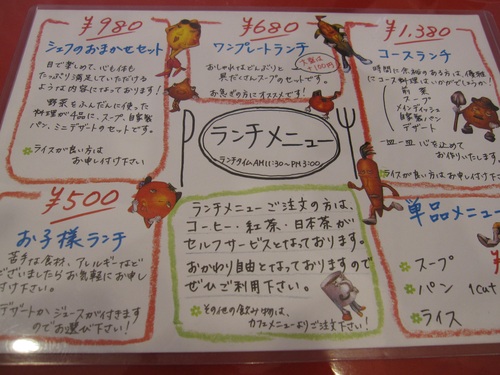 ¥980
シェフのおまかせセット
目で楽しめて、心も体も
たっぷり満足していただける
ような内容になっております!
野菜をふんだんに使った
料理が4品に、スープ、自家製
パン、ミニデザートのセットです。
ライスが良い方は
お申し付け下さい
¥680
ワンプレートランチ
大盛は
+100円
おしゃれなどんぶりと
具だくさんスープのセットです。
お急ぎの方にオススメです!
¥1,380
コースランチ
時間に余裕のある方は、優雅
にコース料理はいかがでしょうか
前菜
スープ
メインディッシュ
自家製パン
デザート
一皿一皿心を込めて
お作りいたします。
ライスが良い方はお申し付け下さい
ランチメニュー
ランチタイムAM11:30~PM3:00
¥500
お子様ランチ
苦手な食材、アレルギーなど
ございましたらお気軽にお申し
付け下さい。
デザートかジュースが付きます
のでお選び下さい!
ランチメニューご注文の方は、
コーヒー・紅茶・日本茶が
セルフサービスとなっております。
おかわり自由となっておりますので
ぜひご利用下さい。
その他の飲み物は、
カフェメニューよりご注文下さい!
単品メニュー
スープ
パン 1cut
ライス